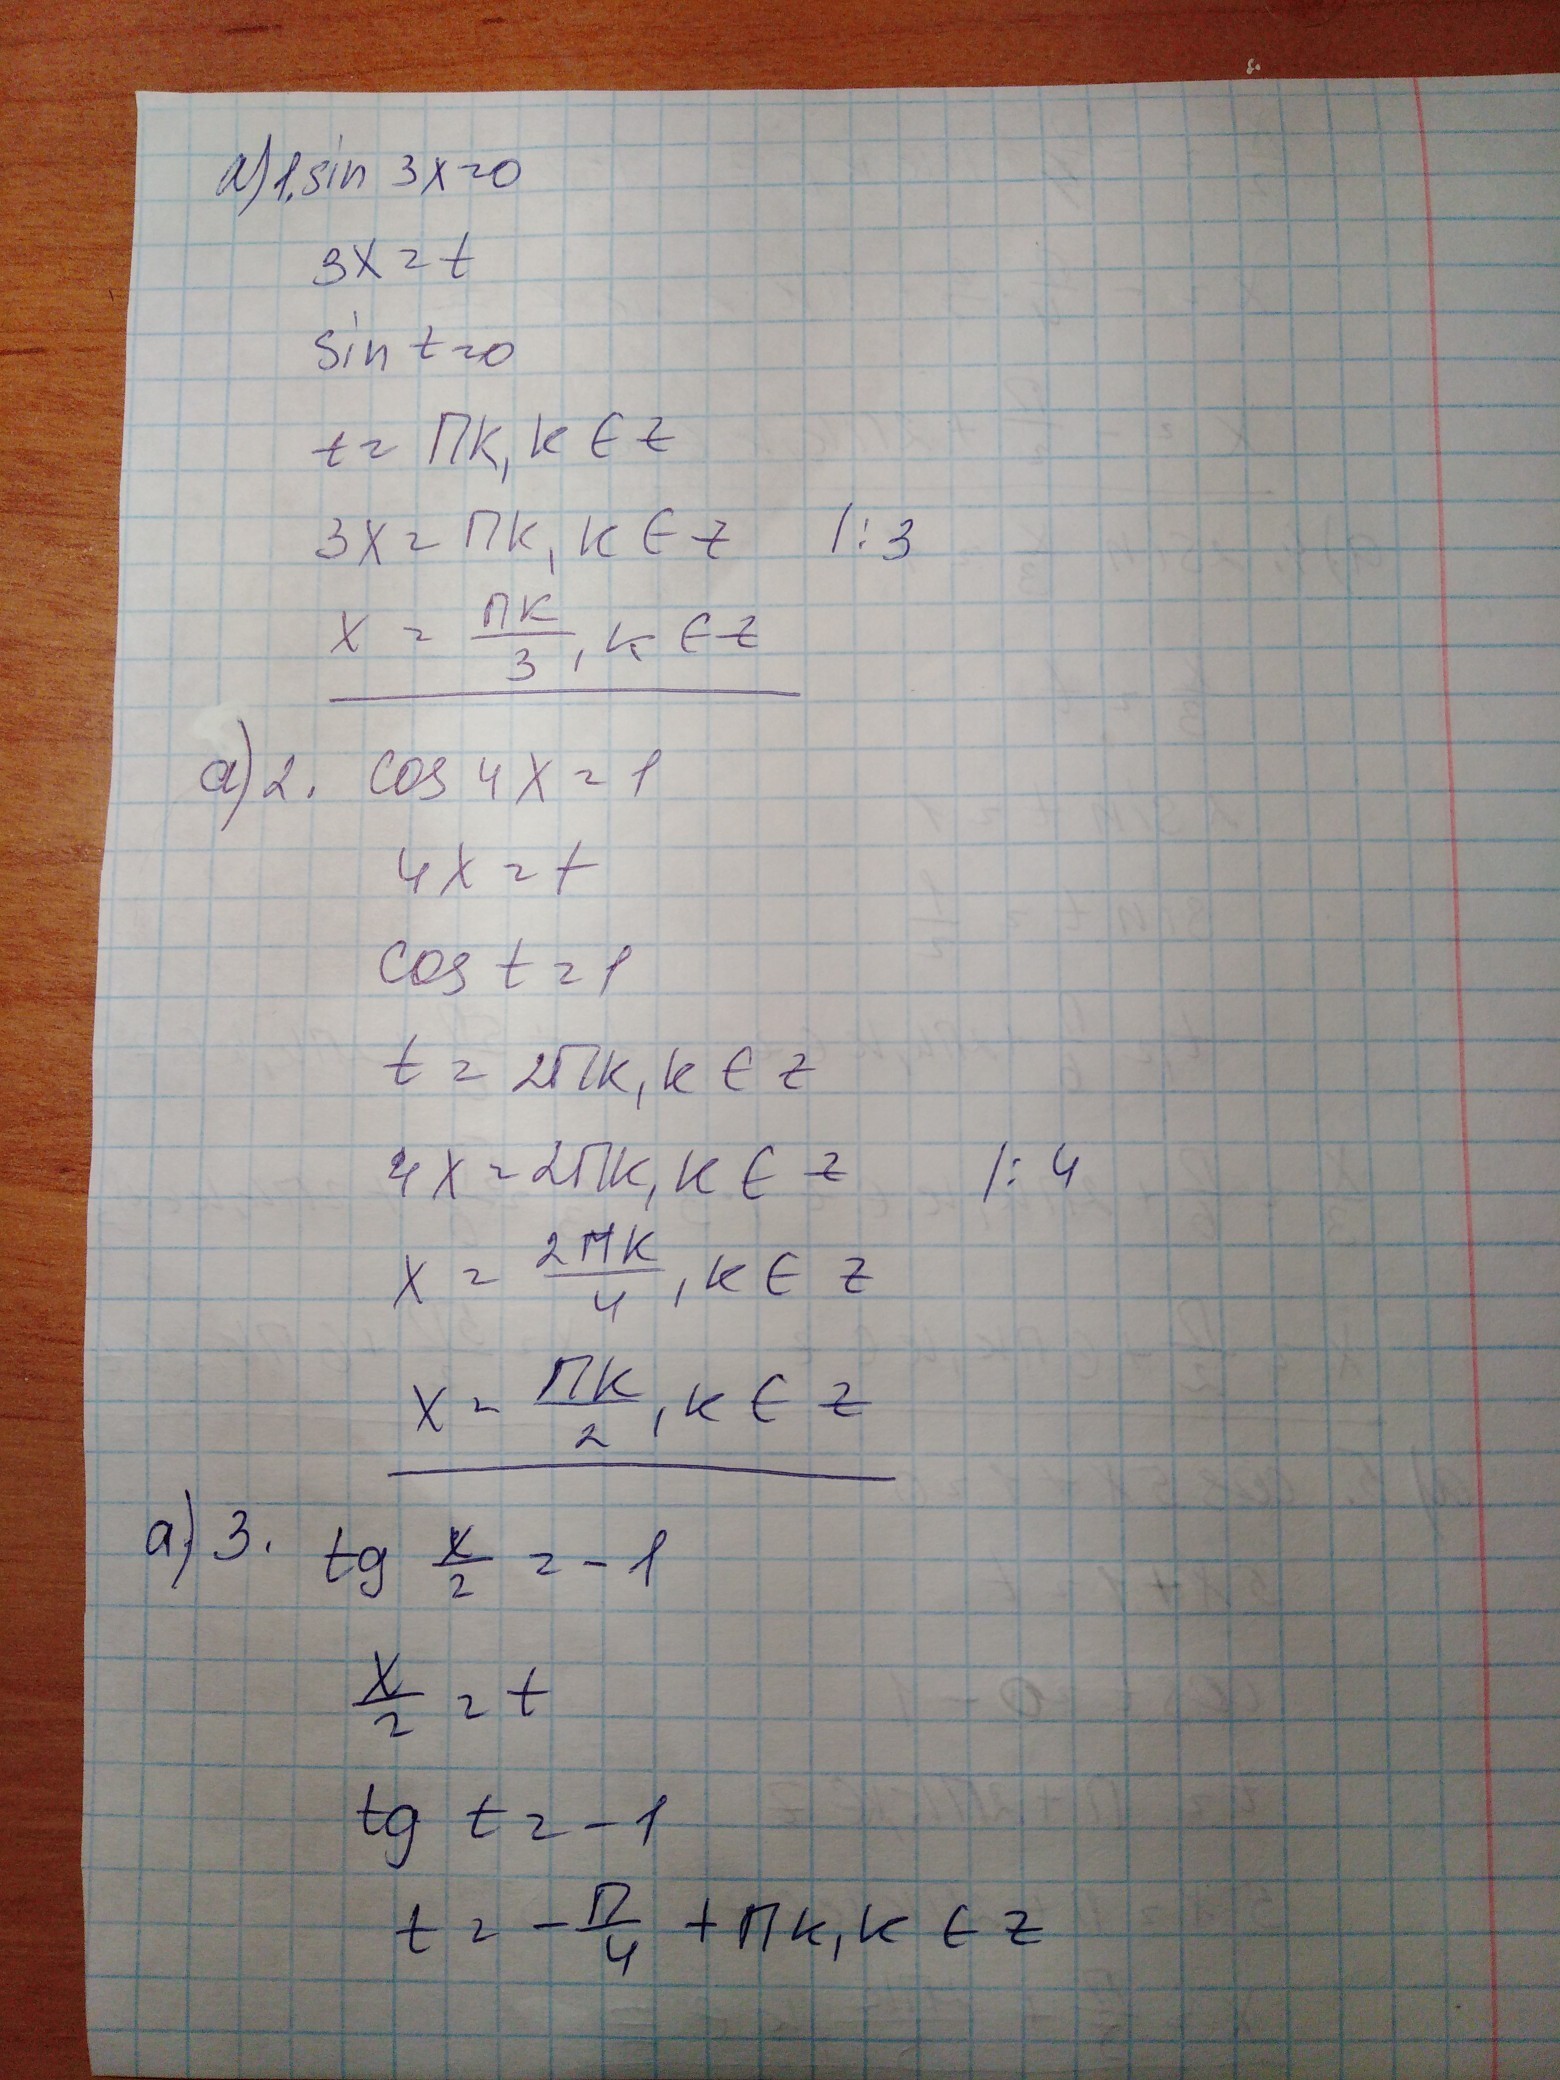 а) 1. sin 3x = 0
3x = t
sin t = 0
t = Пk, k ∈ Z
3x = Пk, k ∈ Z /: 3
x = Пk/3, k ∈ Z
а) 2. cos 4x = 1
4x = t
cos t = 1
t = 2Пk, k ∈ Z
4x = 2Пk, k ∈ Z /: 4
x = 2Пk/4, k ∈ Z
x = Пk/2, k ∈ Z
а) 3. tg x/2 = -1
x/2 = t
tg t = -1
t = -П/4 + Пk, k ∈ Z